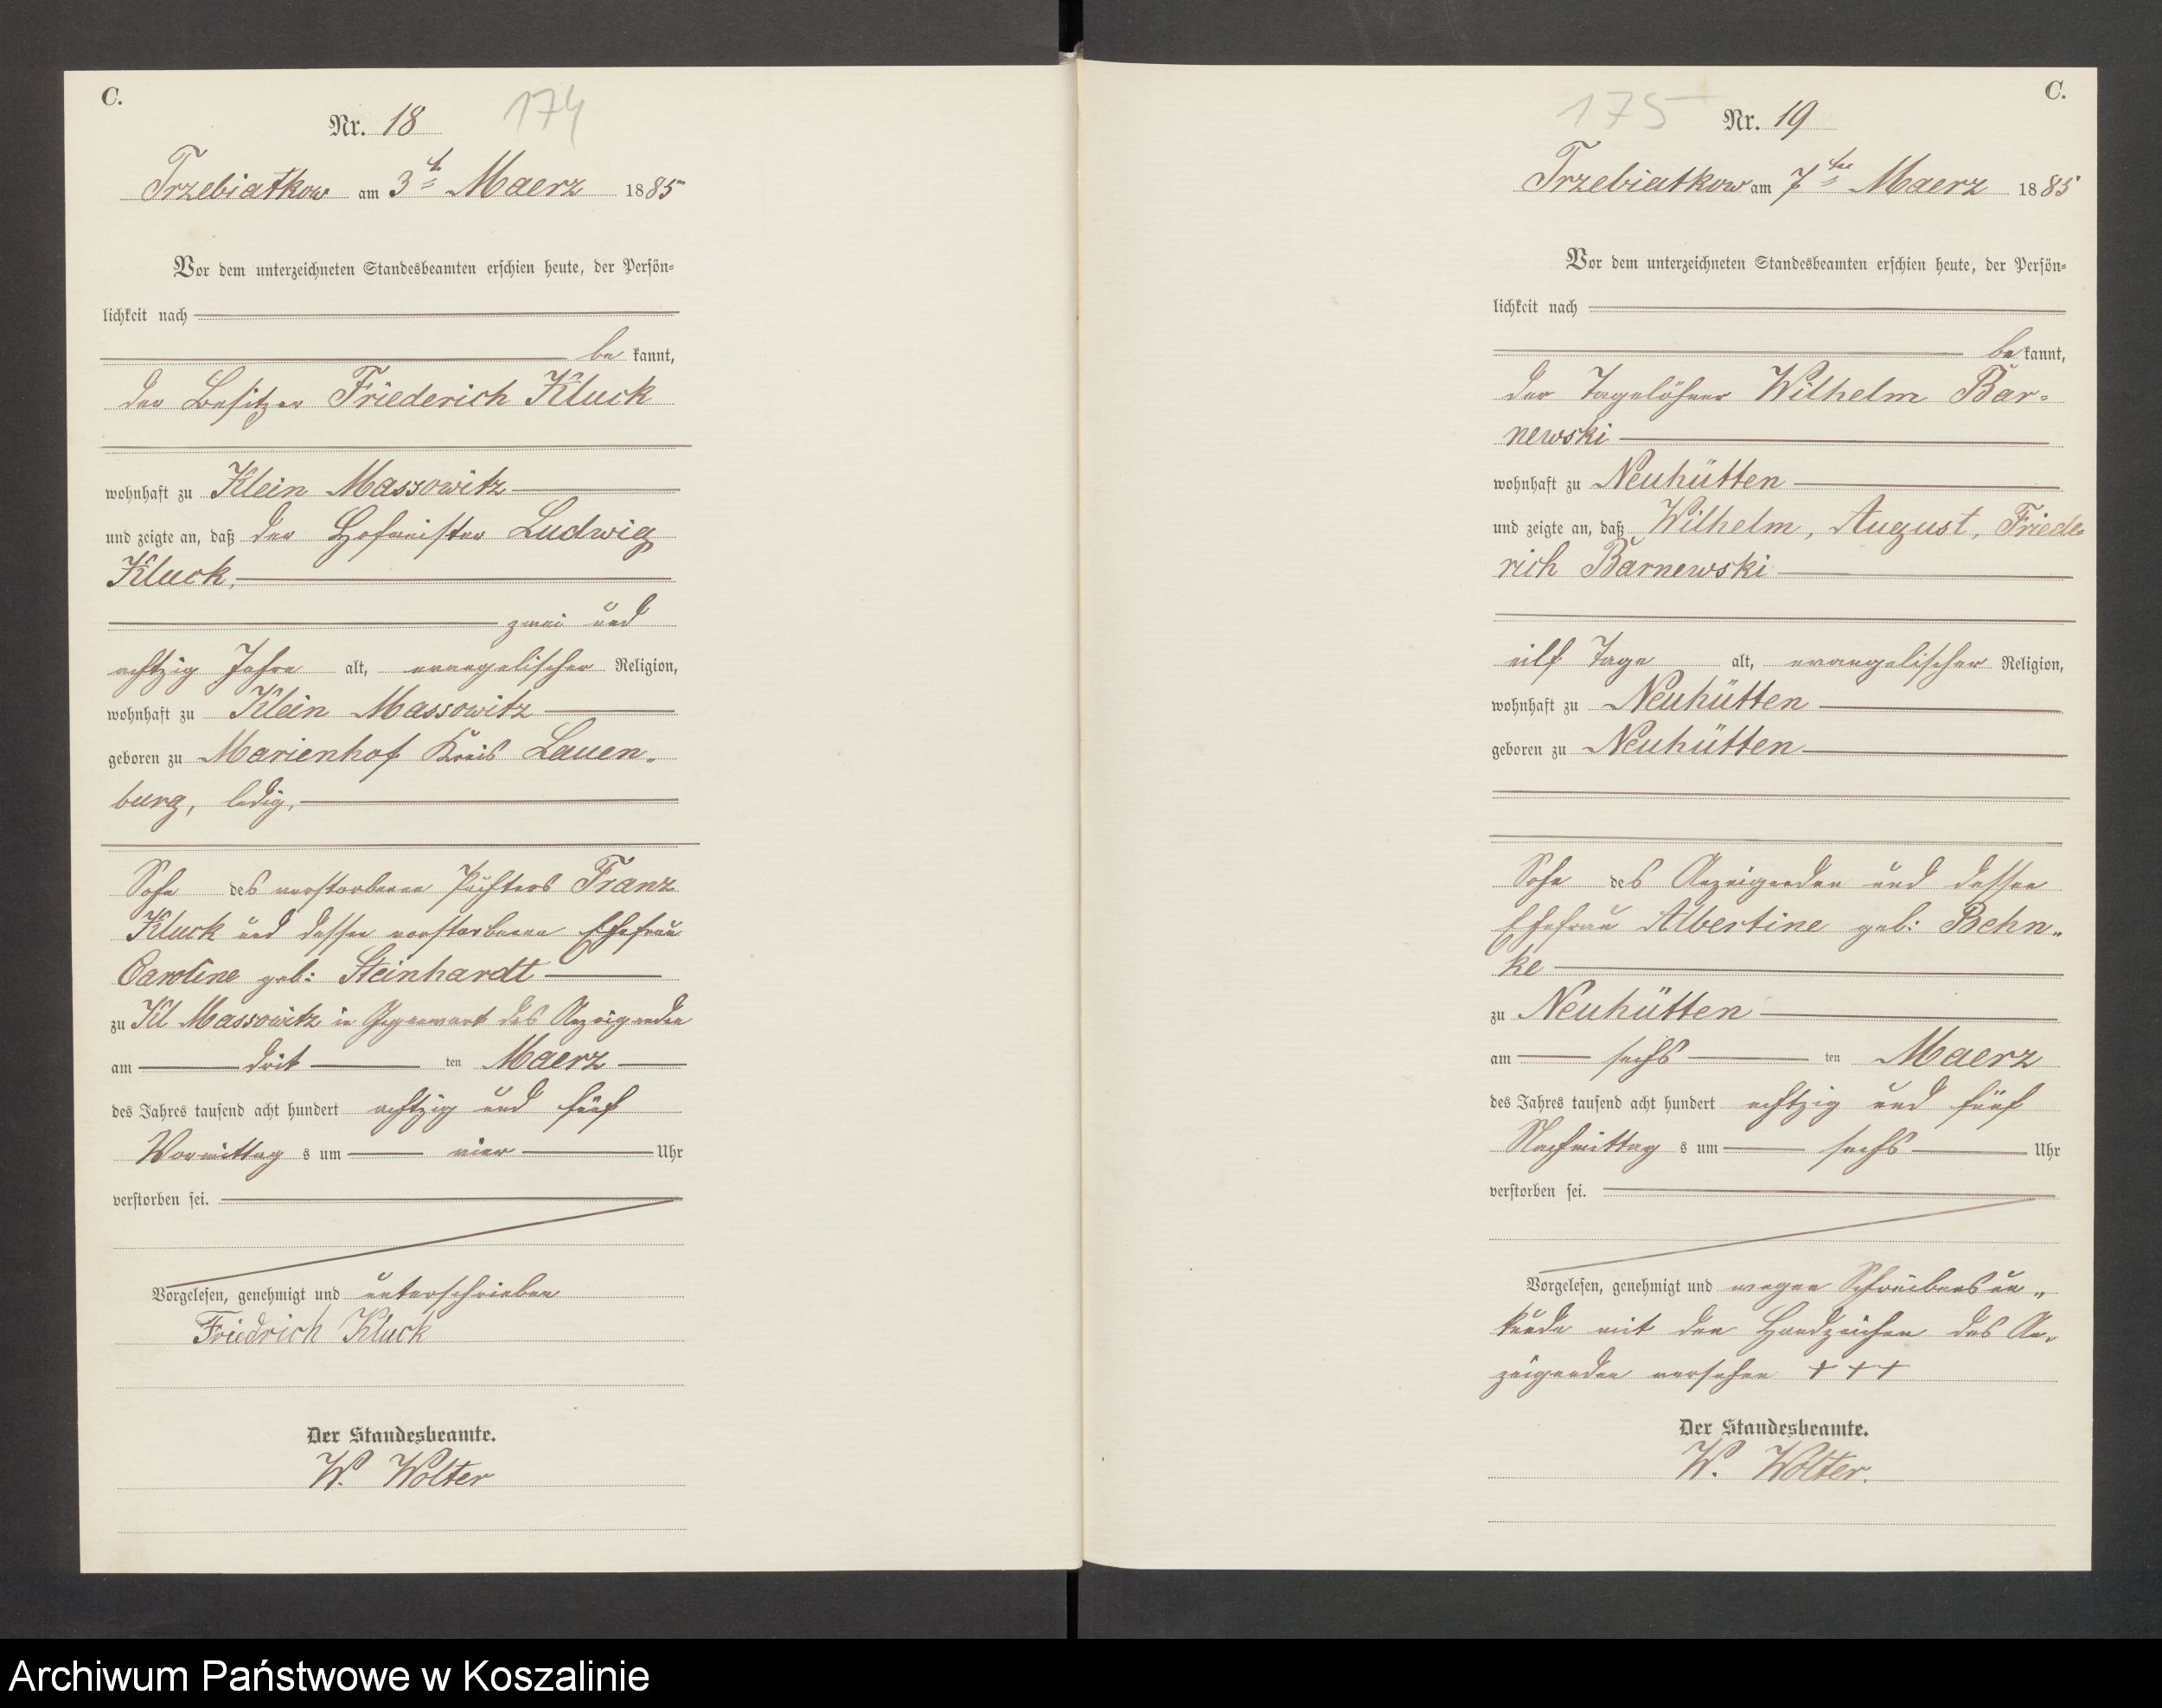 C.
Nr. 18
174
Trzebiatkow am 3ten Maerz 1885
Vor dem unterzeichneten Standesbeamten erschien heute, der Persön=
lichkeit nach
be kannt,
der Besitzer Friederich Kluck
wohnhaft zu Klein Massowitz
und zeigte an, daß der Hofmeister Ludwig
Kluck,
zwei und
achtzig Jahre alt, evangelischer Religion,
wohnhaft zu Klein Massowitz
geboren zu Marienhof Kreis Lauen„
burg, ledig,
Sohn des verstorbenen Pächters Franz
Kluck und dessen verstorbenen Ehefrau
Caroline geb: Steinhardt
zu Kl Massowitz in Gegenwart des Anzeigenden
am drit ten Maerz
des Jahres tausend acht hundert achtzig und fünf
Vormittag s um vier Uhr
verstorben sei.
Vorgelesen, genehmigt und unterschrieben
Friedrich Kluck
Der Standesbeamte.
W. Wolter
C.
175
Nr. 19
Trzebiatkow am 7ten Maerz 1885
Vor dem unterzeichneten Standesbeamten erschien heute, der Persön=
lichkeit nach
be kannt,
der Tagelöhner Wilhelm Bar=
newski
wohnhaft zu Neuhütten
und zeigte an, daß Wilhelm, August, Friede
rich Barnewski
eilf Tage alt, evangelischer Religion,
wohnhaft zu Neuhütten
geboren zu Neuhütten
Sohn des Anzeigenden und dessen
Ehefrau Albertine geb: Behn„
ke
zu Neuhütten
am sechs ten Maerz
des Jahres tausend acht hundert achtzig und fünf
Nachmittag s um sechs Uhr
verstorben sei.
Vorgelesen, genehmigt und wegen Schreibensun„
kunde mit den Handzeichen des An„
zeigenden versehen + + +
Der Standesbeamte.
W. Wolter.
Archiwum Państwowe w Koszalinie